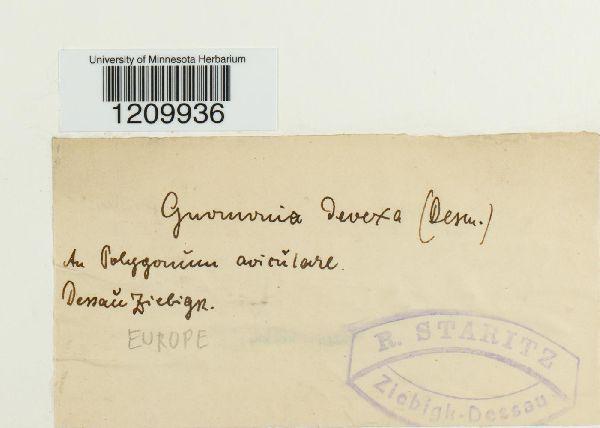 University of Minnesota Herbarium
1209936
Gnomonia devexa (Desm.)
An Polygonŭm avicŭlare.
Dessaŭ Ziebigk.
EUROPE
R. STARITZ
Ziebigk-Dessau